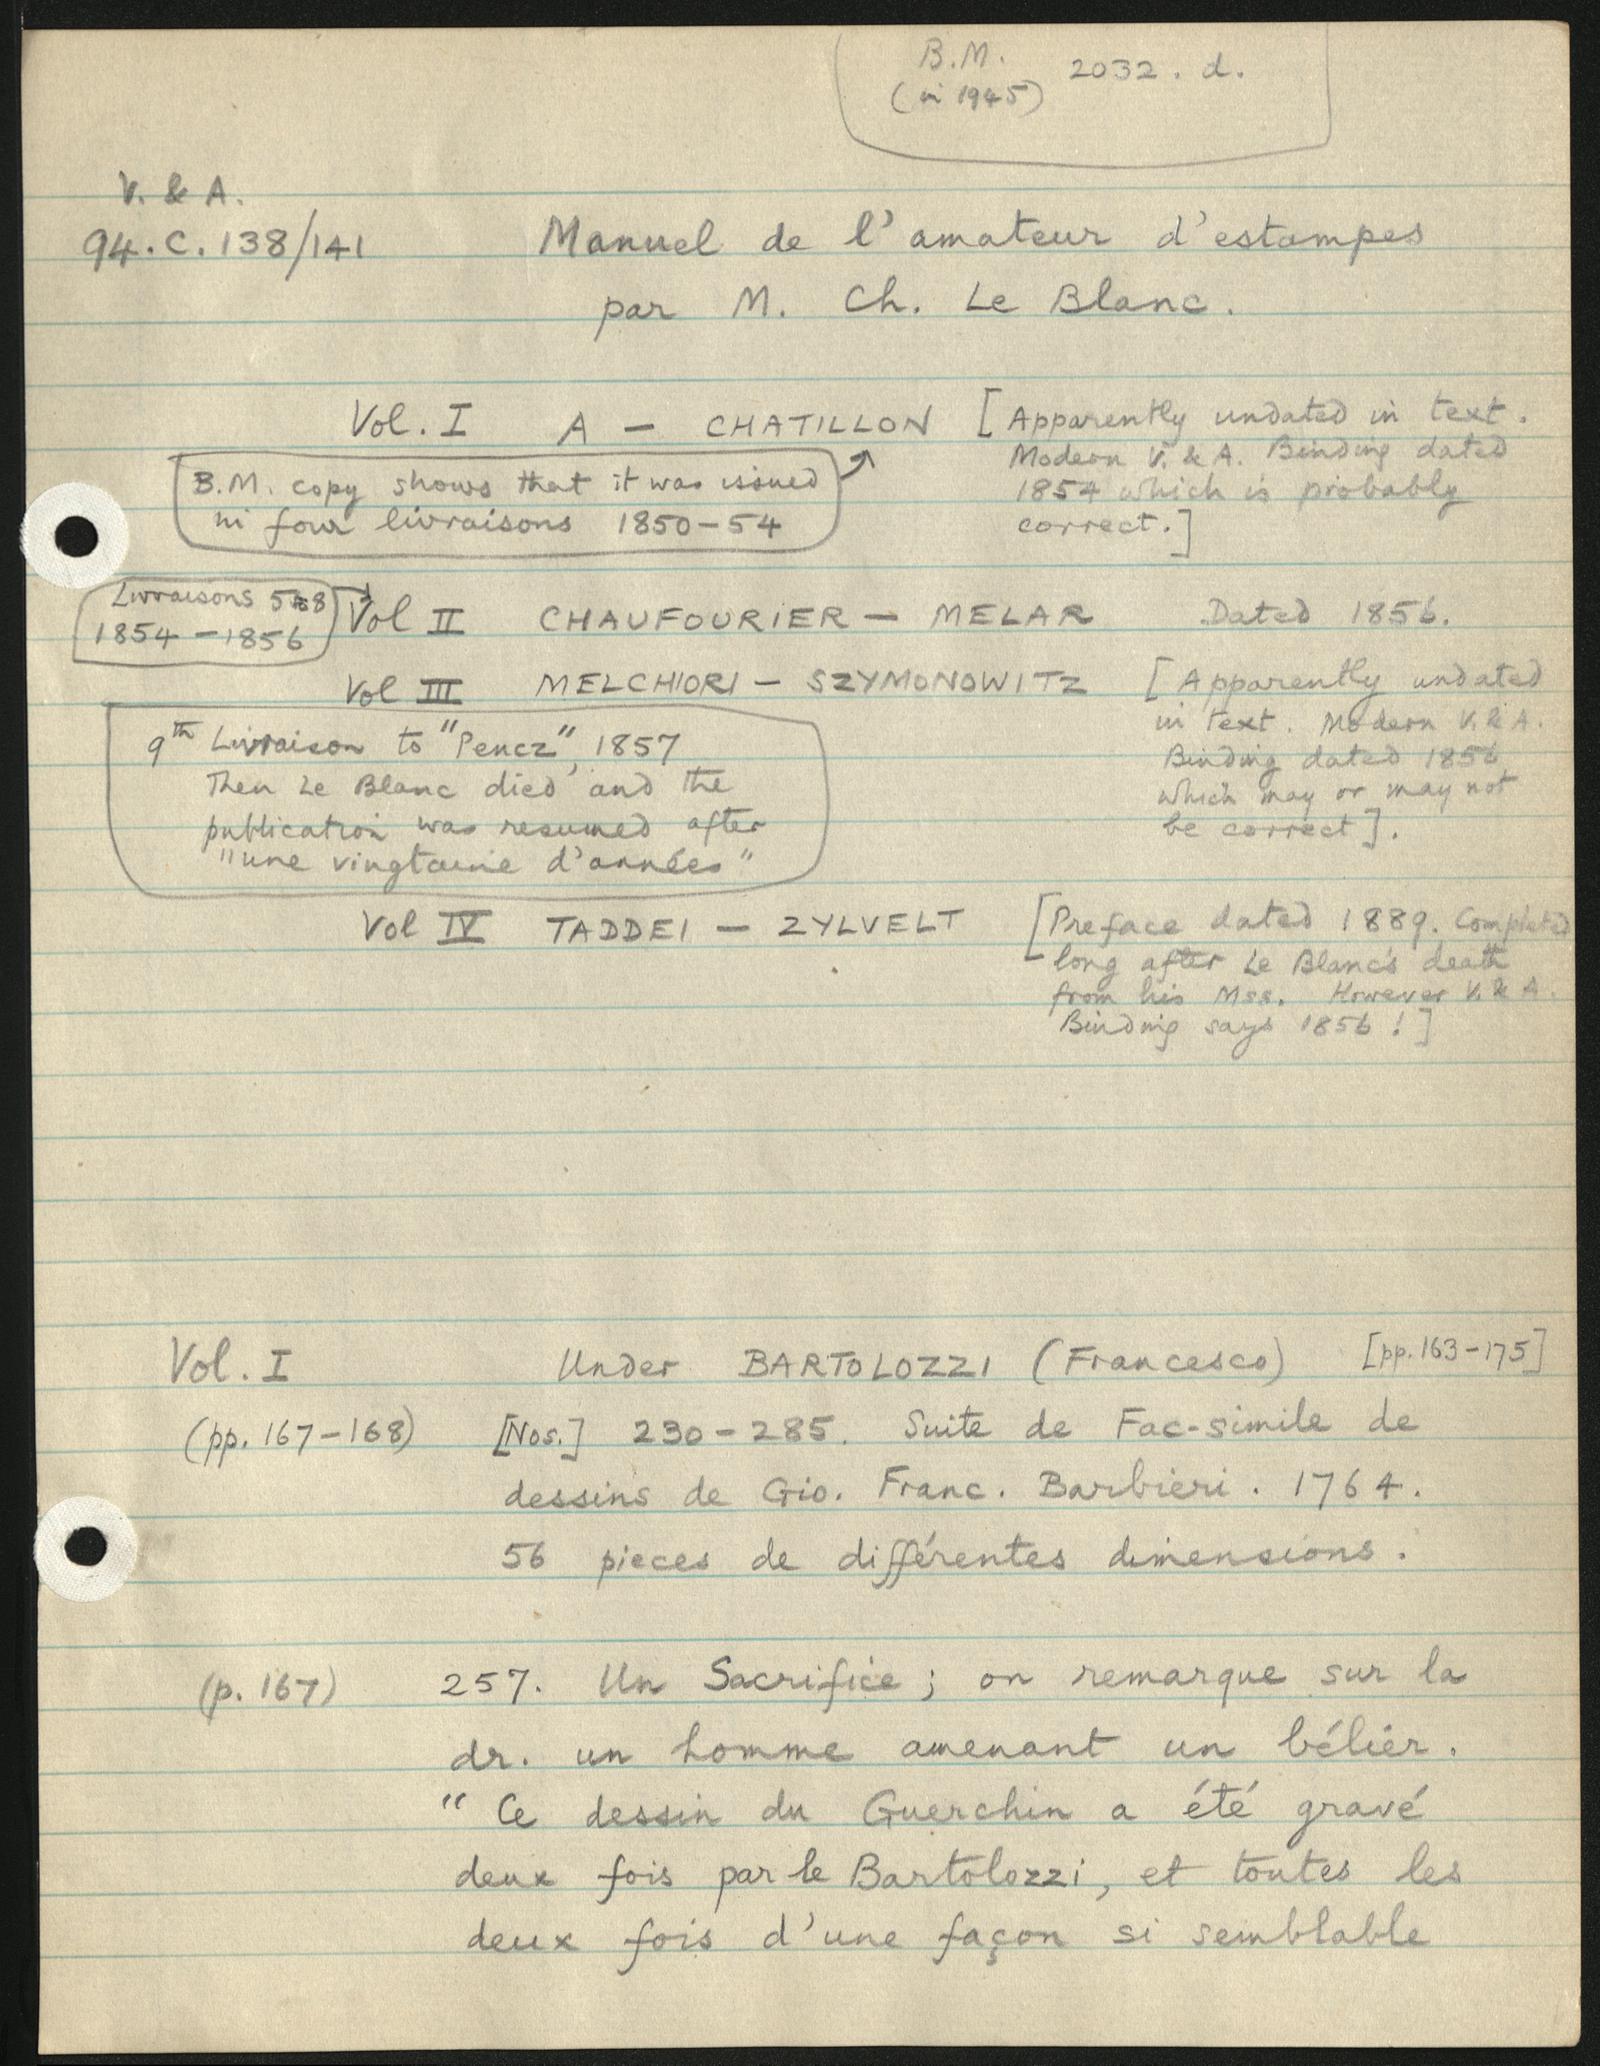 B.M.
(in 1945) 2032. d.
V. & A.
94. C. 138/141
Manuel de l'amateur d'estampes
par M. Ch. Le Blanc.
Vol. I A — CHATILLON
[Apparently undated in text.
Modern V. & A. Binding dated
1854 which is probably
correct.]
B.M. copy shows that it was issued
in four livraisons 1850–54
Livraisons 5-8
1854 – 1856
Vol II CHAUFOURIER — MELAR Dated 1856.
Vol III MELCHIORI — SZYMONOWITZ
[Apparently undated
in text. Modern V. & A.
Binding dated 1856
which may or may not
be correct].
9th Livraison to "Pencz", 1857
Then Le Blanc died and the
publication was resumed after
"une vingtaine d'années"
Vol IV TADDEI — ZYLVELT
[Preface dated 1889. Completed
long after Le Blanc's death
from his Mss. However V. & A.
Binding says 1856 ! ]
Vol. I Under BARTOLOZZI (Francesco) [pp. 163–175]
(pp. 167–168) [Nos.] 230–285. Suite de Fac-simile de
dessins de Gio. Franc. Barbieri. 1764.
56 pieces de différentes dimensions.
(p. 167) 257. Un Sacrifice ; on remarque sur la
dr. un homme amenant un bélier.
" Ce dessin du Guerchin a été gravé
deux fois par le Bartolozzi, et toutes les
deux fois d'une façon si semblable